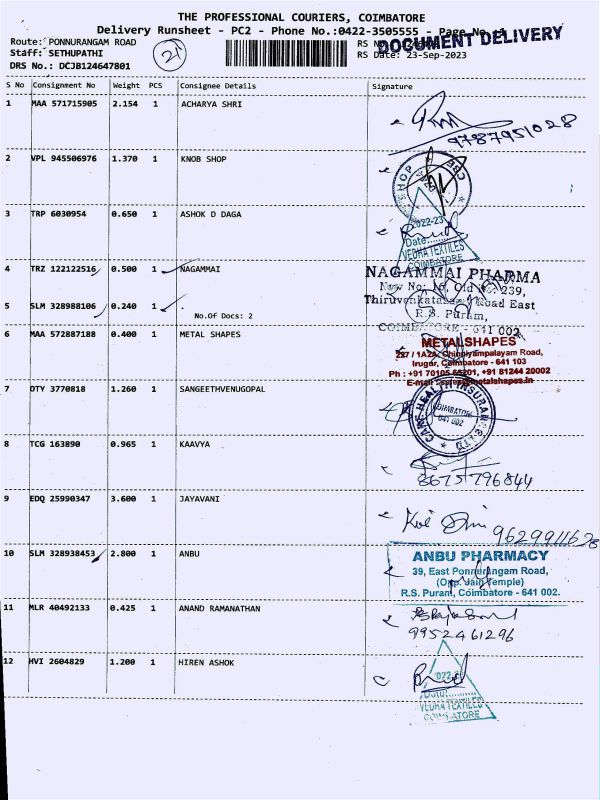 THE PROFESSIONAL COURIERS, COIMBATORE
Delivery Runsheet - PC2 - Phone No.:0422-3505555 - Page No.
Route: PONNURANGAM ROAD
Staff: SETHUPATHI
DRS No.: DCJB124647801
21
RS
DOCUMENT DELIVERY
RS Date: 23-Sep-2023
S No Consignment No Weight PCS Consignee Details Signature
1 MAA 571715905 2.154 1 ACHARYA SHRI
9787951028
2 VPL 945506976 1.370 1 KNOB SHOP
3 TRP 6030954 0.650 1 ASHOK D DAGA
2022-23
Date:
VEDHA TEXTILES
COIMBATORE
4 TRZ 122122516 0.500 1 NAGAMMAI
NAGAMMAI PHARMA
New No: 16, Old No: 239,
Thiruvenkatasamy Road East
R.S. Puram,
COIMBATORE - 641 002
5 SLM 328988106 0.240 1
No.Of Docs: 2
6 MAA 572887188 0.400 1 METAL SHAPES
METALSHAPES
227 / 1A2A, Chinniyampalayam Road,
Irugur, Coimbatore - 641 103
+91 81244 20002
7 DTY 3770818 1.260 1 SANGEETHVENUGOPAL
CARE HEALTH INSURANCE LTD
COIMBATORE
641 002
8 TCG 163890 0.965 1 KAAVYA
8675796844
9 EDQ 25990347 3.600 1 JAYAVANI
9629911628
10 SLM 328938453 2.800 1 ANBU
ANBU PHARMACY
39, East Ponnurangam Road,
(Opp. Jain Temple)
R.S. Puram, Coimbatore - 641 002.
11 MLR 40492133 0.425 1 ANAND RAMANATHAN
9952461296
12 HVI 2604829 1.200 1 HIREN ASHOK
VEDHA TEXTILES
COIMBATORE